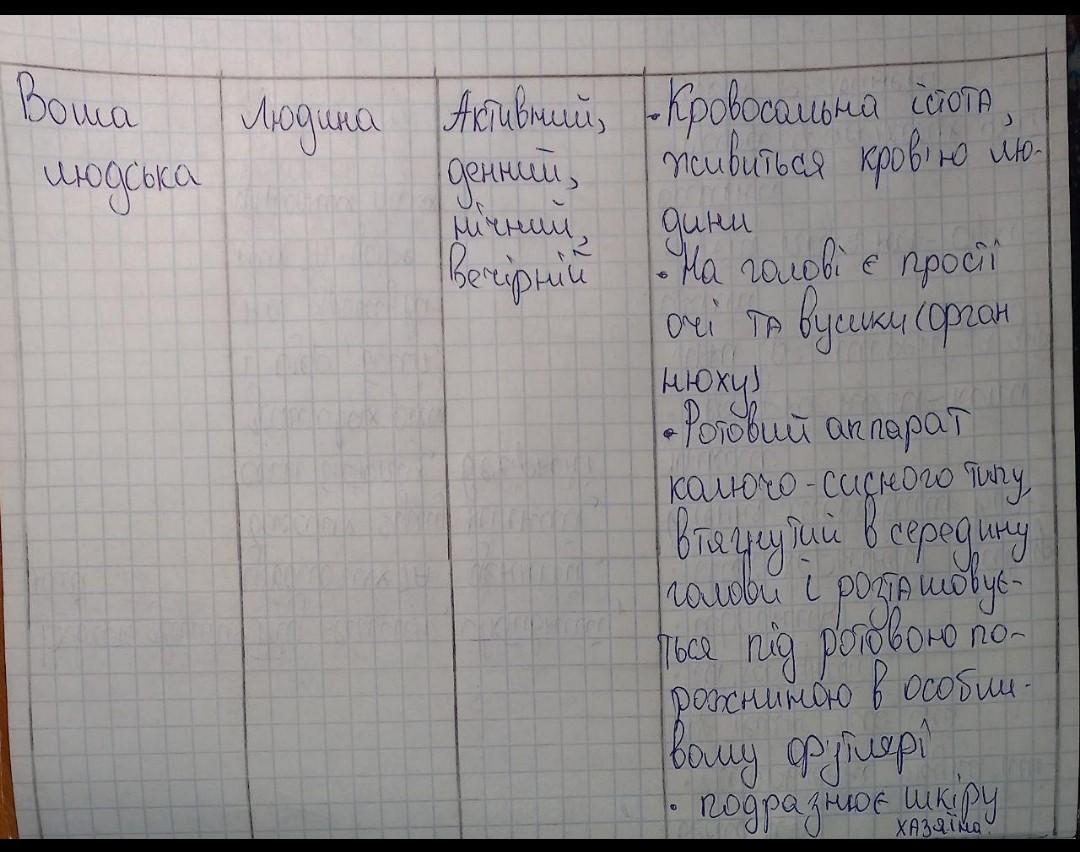 Воша
людська
Людина
Активний,
денний,
нічний,
вечірній
• Кровосальна істота,
живиться кров'ю лю-
дини
• На голові є прості
очі та вусики (орган
нюху)
• Ротовий аппарат
колючо-сисного типу,
втягнутий в середину
голови і розташовує-
ться під ротовою по-
рожниною в особли-
вому футлярі
• подразнює шкіру
хазяїна.